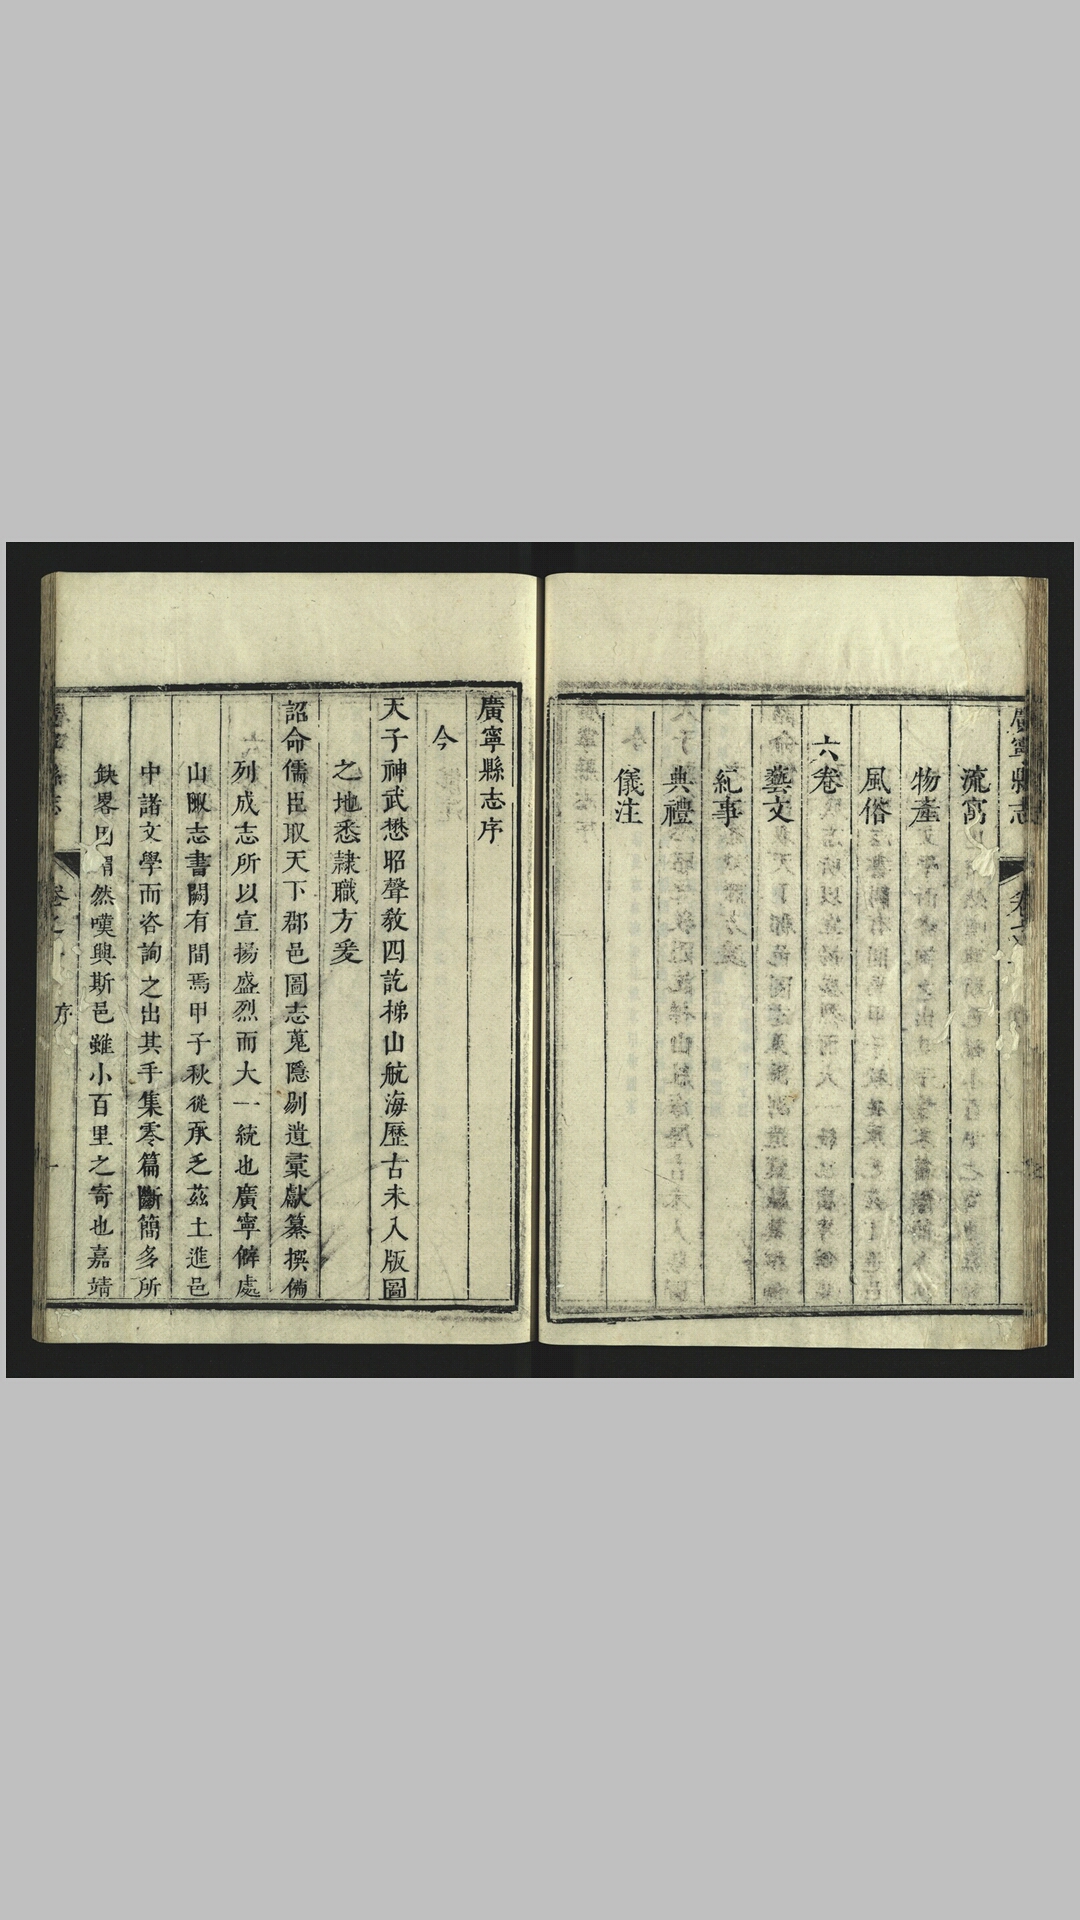 廣寧縣志
流寓
物產
風俗
六卷
藝文
紀事
典禮
儀注
廣寧縣志序
今
天子神武懋昭聲敎四訖梯山航海歷古未入版圖
之地悉隸職方爰
詔命儒臣取天下郡邑圖志蒐隱剔遺彚獻纂撰備
列成志所以宣揚盛烈而大一統也廣寧僻處
山陬志書闕有間焉甲子秋從承乏茲土進邑
中諸文學而咨詢之出其手集零篇斷簡多所
缺畧因喟然嘆興斯邑雖小百里之寄也嘉靖
縣志
序
一